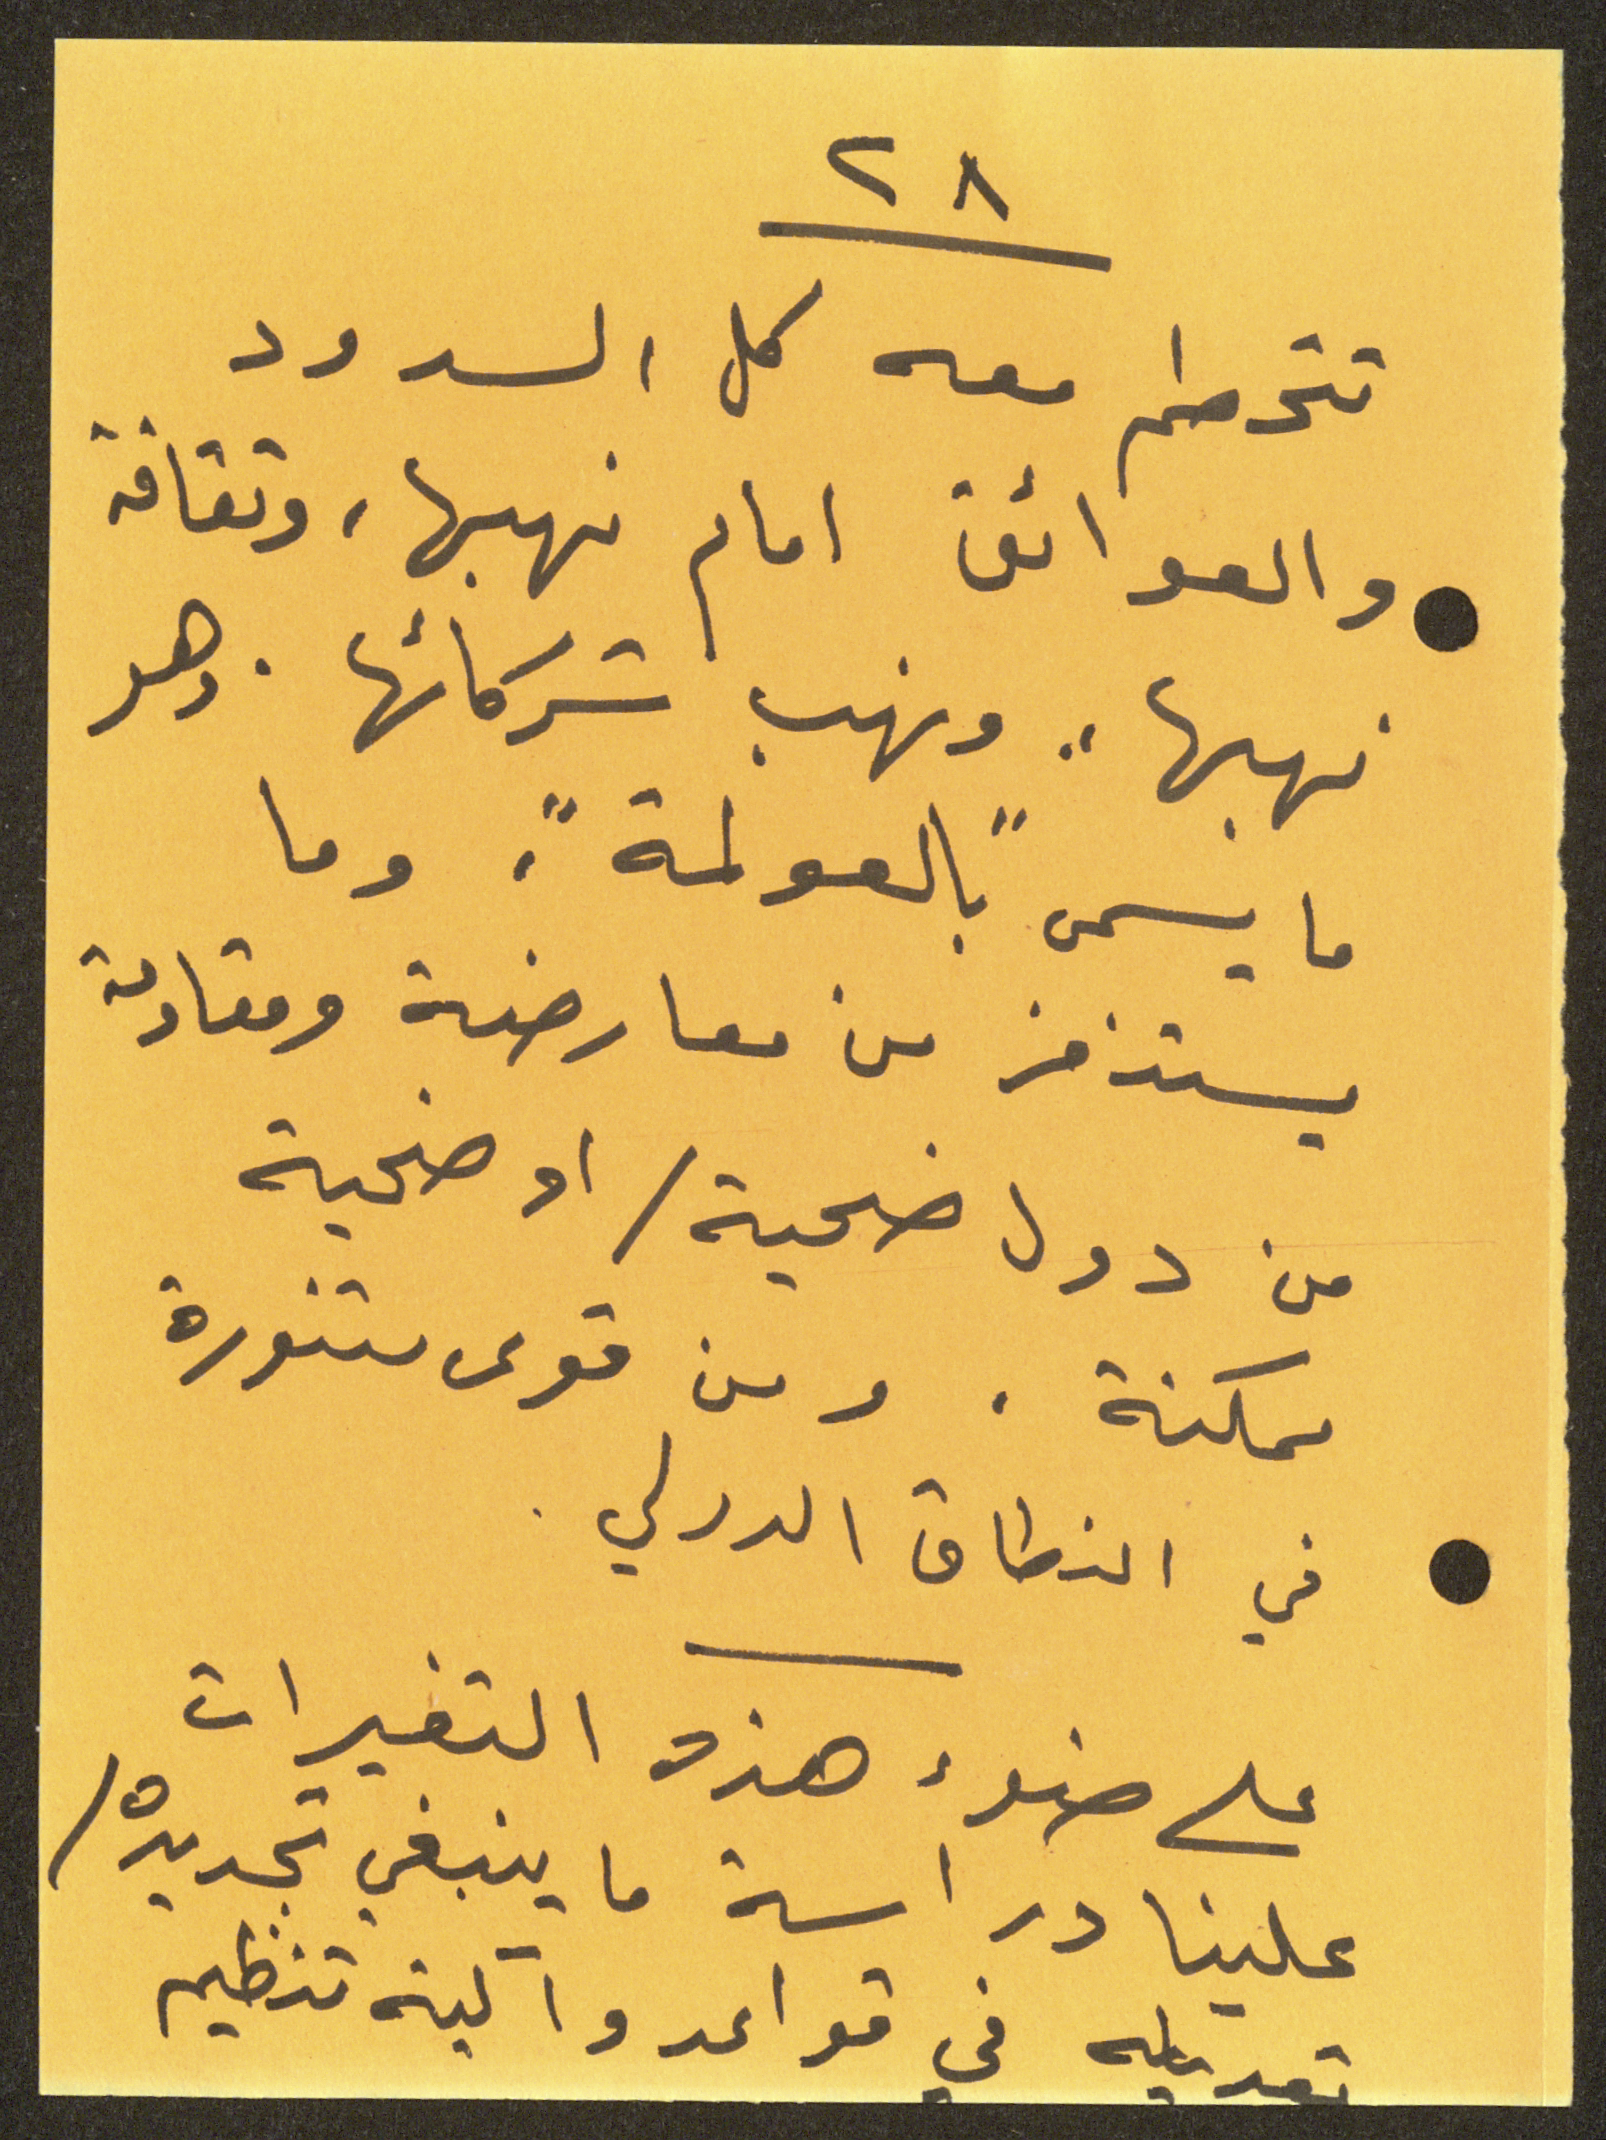 ٢٨
تتحطم معه كل السدود
والعوائق امام نهبها، وثقافة
نهبها، ونهب شركائها. وهو
ما يسمى "بالعولمة"، وما
يستفز من معارضة ومقاومة
من دول ضحية/ او ضحية
ممكنة. ومن قوى متنورة
في النطاق الدولي.
على ضوء هذه التغيرات
علينا دراسة ما ينبغي تجديده/
تعديله في قواعد وآلية تنظيم